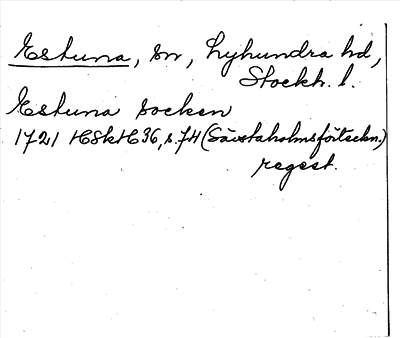 Estuna, sn, Lyhundra hd,
Stockh. l.
Estuna socken
1721 HSH 36, s. 74 (Sävstaholmsförteckn.)
regest.